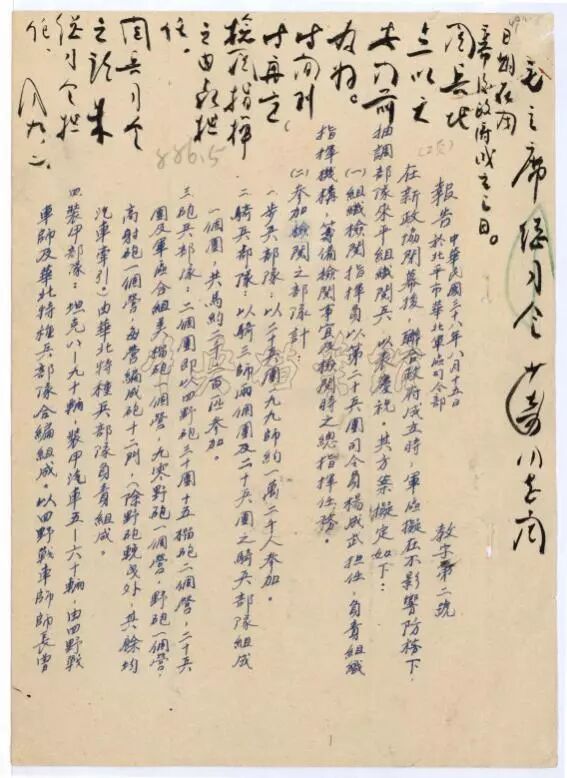 毛主席總司令少奇同志閱
日期在閉
幕後政府成立之日。
閱兵地
点以天
安門前
为好。
時間到
時再定，
檢閱指揮
之由聶担
任。
閱兵司令
之請朱
總司令担
任、周九、二、
88615
報告 中華民國三十八年八月十五日於北平市華北軍區司令部 教字第二號
在新政協閉幕後，聯合政府成立時，軍區擬在不影響防務下，
抽調部隊來平組織閱兵，以表慶祝。其方案擬定如下：
(一)組織檢閱指揮員以第二十兵團司令員楊成武担任，負責組織
指揮機構，籌備檢閱事宜及檢閱時之總指揮任務。
(二)參加檢閱之部隊計：
一步兵部隊：以二十兵團一九九師約一萬二千人參加。
二騎兵部隊：以騎三師兩個團及二十兵團之騎兵部隊組成
一個團，共馬約二千二百匹參加。
三砲兵部隊：二個團即以四野砲三十團十五榴砲二個營，二十兵
團及軍區合組美榴砲一個營，九零野砲一個營，野砲一個營，
高射砲一個營，每營編成砲十二門，(除野砲輓曳外，其餘均
汽車牽引)由華北特種兵部隊負責組成。
四裝甲部隊：坦克八—九十輛，裝甲汽車五—六十輛，由四野戰
車師及華北特種兵部隊合編組成。以四野戰車師師長曹